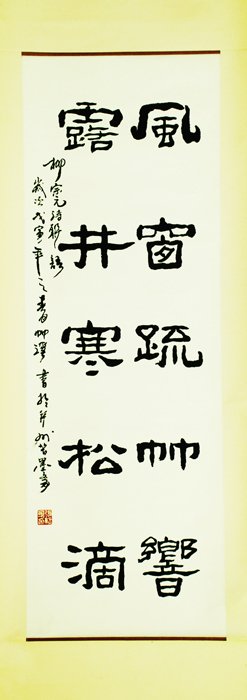 風窗疏竹響
露井寒松滴
柳宗元詩聯語
歲次戊寅年之春